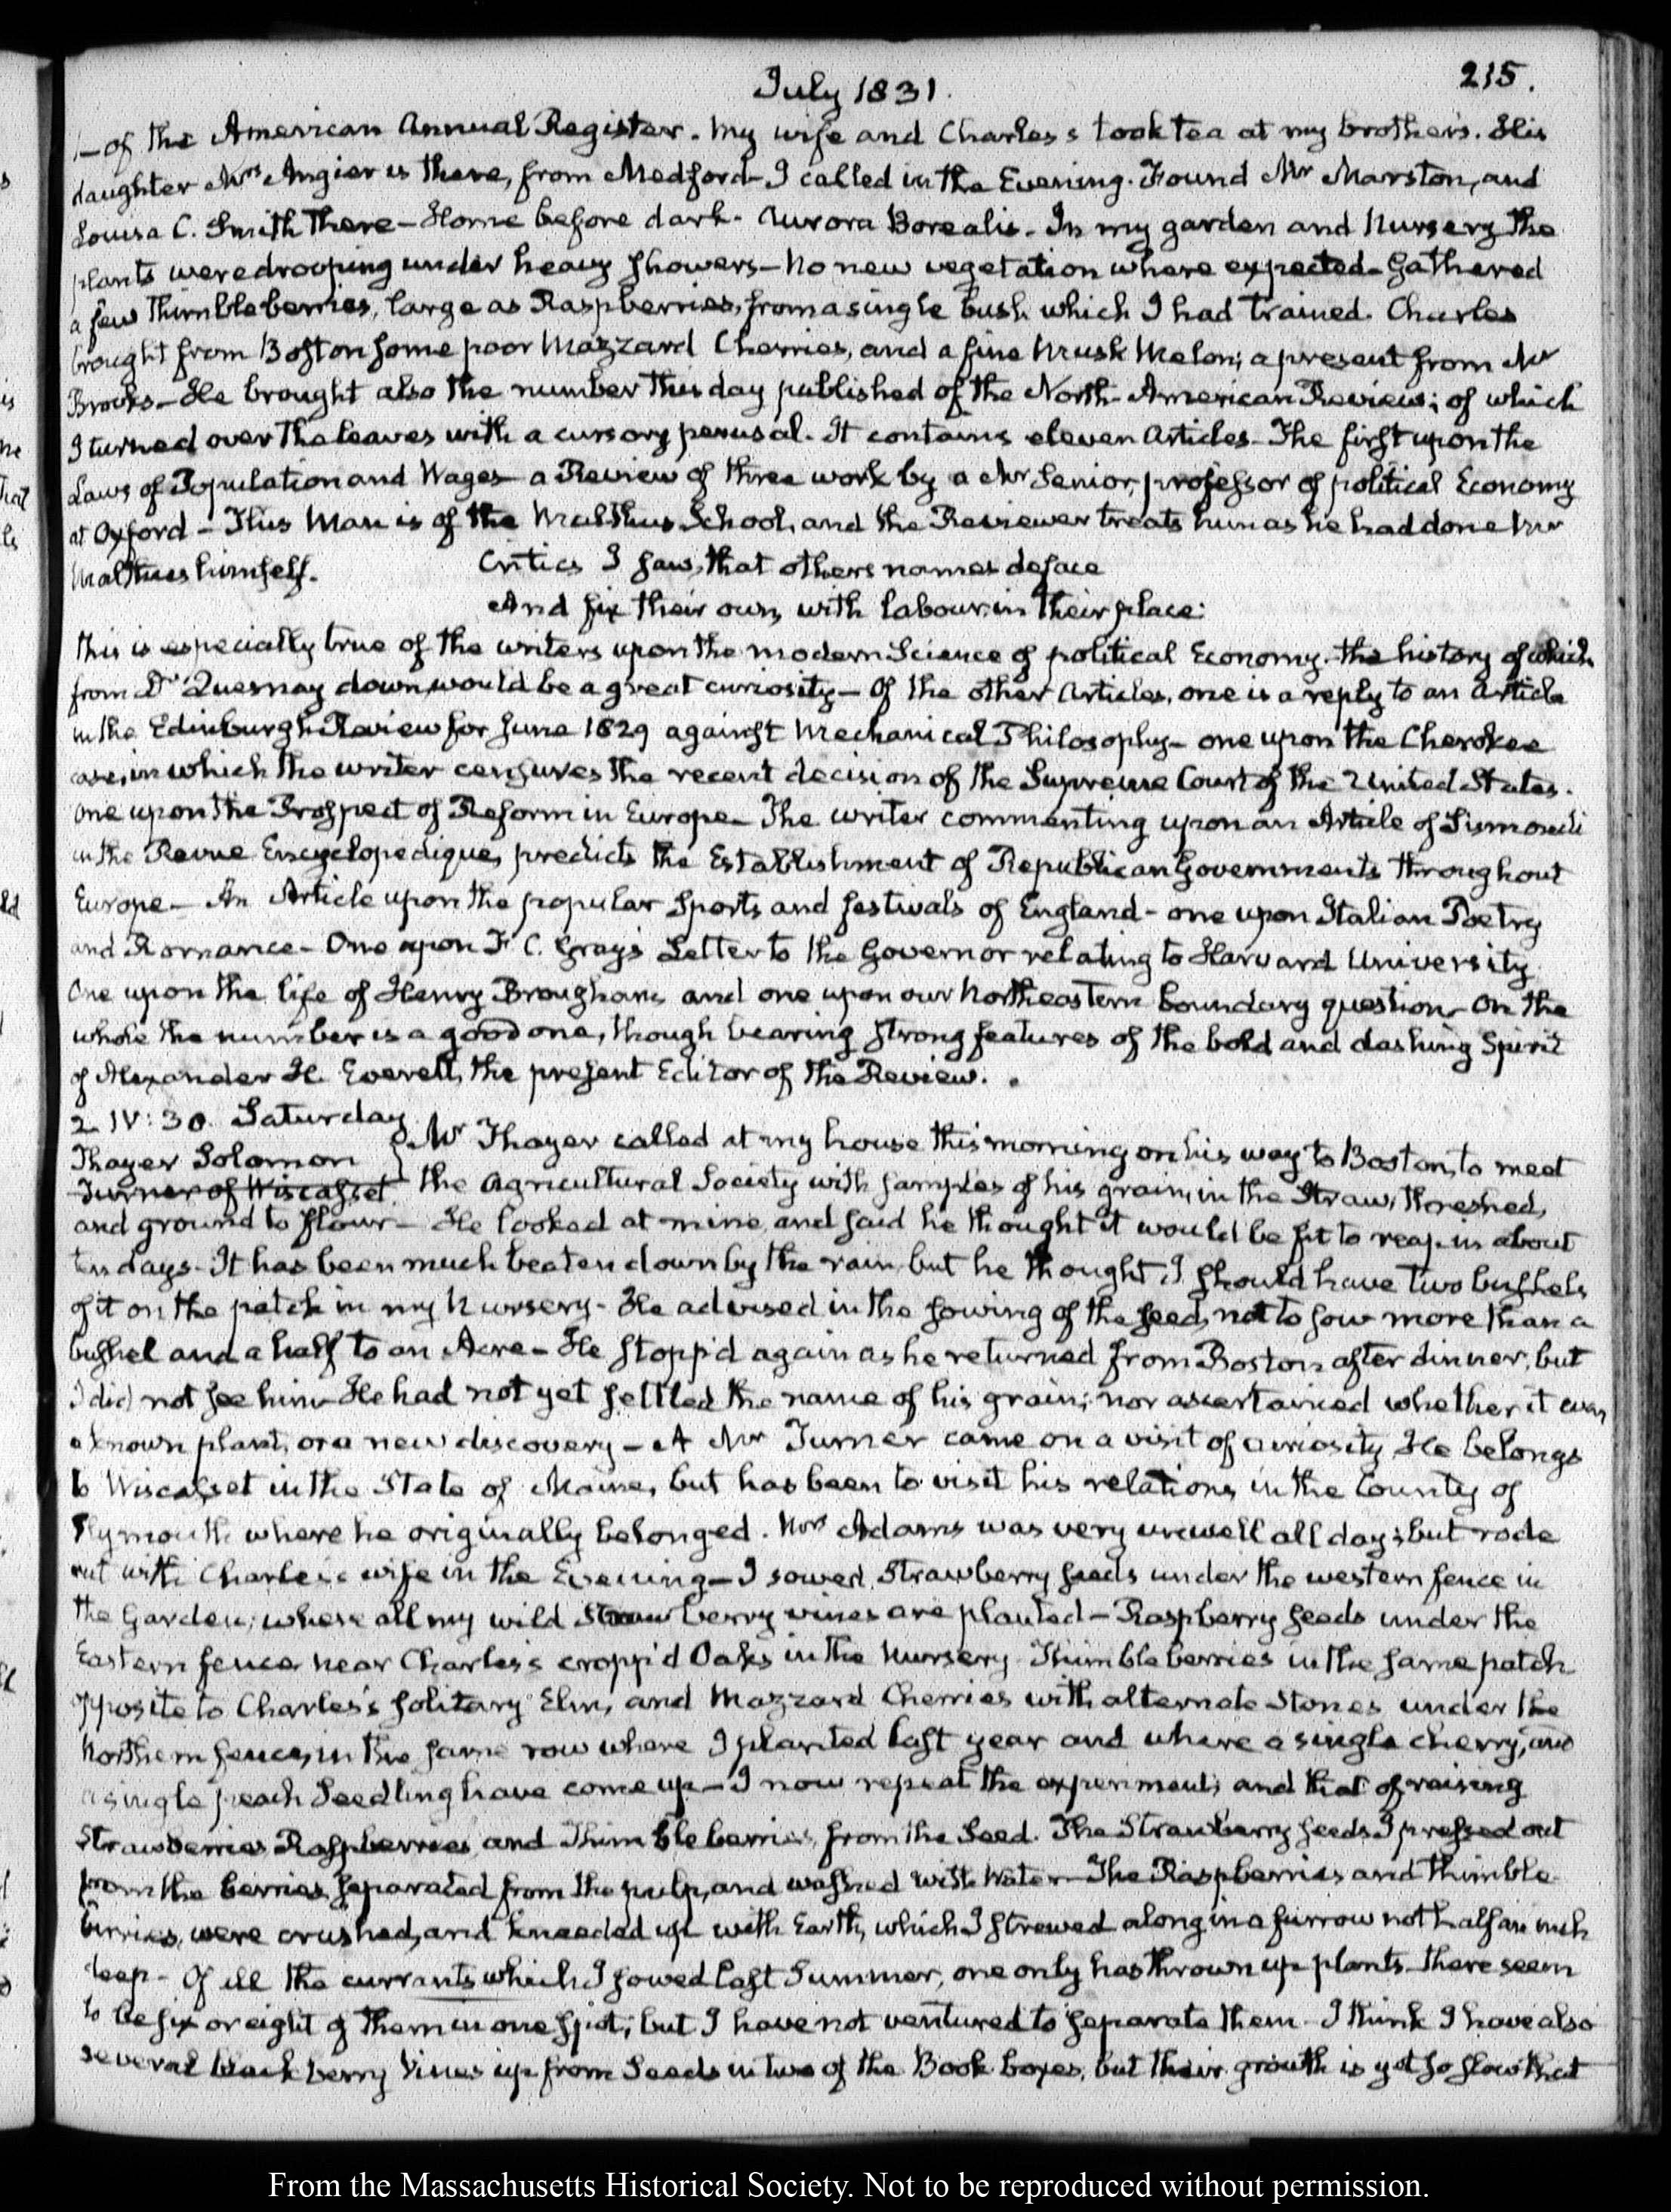 215.
July 1831.
1— of the American Annual Register. My wife and Charles's took tea at my brother's. His
daughter Mrs Angier is there, from Medford— I called in the Evening. Found Mr Marston, and
Louisa C. Smith there— Home before dark. Aurora Borealis. In my garden and Nursery the
plants were drooping under heavy showers— No new vegetation where expected— Gathered
a few Thimbleberries, large as Raspberries, from a single bush which I had trained. Charles
brought from Boston some poor Mazzard Cherries, and a fine Musk Melon; a present from Mr
Brooks— He brought also the number this day published of the North-American Review; of which
I turned over the leaves with a cursory perusal. It contains eleven Articles— The first upon the
Laws of Population and Wages— a Review of three work by a Mr Senior, professor of political Economy
at Oxford— This Man is of the Malthus School, and the Reviewer treats him as he had done Mr
Malthus himself.
Critics I saw, that others names deface
And fix their own, with labour, in their place:
this is especially true of the writers upon the modern Science of political Economy, the history of which
from Dr Quesnay down, would be a great curiosity— Of the other Articles, one is a reply to an Article
in the Edinburgh Review for June 1829 against Mechanical Philosophy— one upon the Cherokee
case, in which the writer censures the recent decision of the Supreme Court of the United States.
One upon the Prospect of Reform in Europe— The writer commenting upon an Article of Sismondi
in the Revue Encyclopedique, predicts the Establishment of Republican Governments throughout
Europe— An Article upon the popular Sports and festivals of England— one upon Italian Poetry
and Romance— One upon F. C. Gray's Letter to the Governor relating to Harvard University
One upon the life of Henry Brougham, and one upon our Northeastern boundary question— On the
whole the number is a good one, though bearing strong features of the bold and dashing Spirit
of Alexander H. Everett, the present Editor of the Review.
2. IV:30. Saturday
Thayer Solomon
Turner of Wiscasset
Mr Thayer called at my house this morning on his way to Boston, to meet
the Agricultural Society with samples of his grain, in the Straw, threshed,
and ground to flour— He looked at mine, and said he thought it would be fit to reap in about
ten days— It has been much beaten down by the rain, but he thought I should have two bushels
of it on the patch in my Nursery— He advised in the sowing of the seed, not to sow more than a
bushel and a half to an Acre— He stopp'd again as he returned from Boston after dinner, but
I did not see him— He had not yet settled the name of his grain; nor ascertained whether it was
a known plant, or a new discovery— A Mr Turner came on a visit of curiosity. He belongs
to Wiscasset in the State of Maine, but has been to visit his relations in the County of
Plymouth where he originally belonged. Mrs Adams was very unwell all day; but rode
out with Charles's wife in the Evening— I sowed Strawberry seeds under the western fence in
the Garden; where all my wild Strawberry vines are planted— Raspberry seeds under the
Eastern fence near Charles's cropp'd Oaks in the Nursery. Thimbleberries in the same patch
opposite to Charles's solitary Elm, and Mazzard Cherries with alternate Stones under the
Northern fence, in the same row where I planted last year and where a single cherry, and
a single peach Seedling have come up— I now repeat the experiment; and that of raising
Strawberries, Raspberries, and Thimbleberries, from the Seed. The Strawberry seeds I pressed out
from the berries, separated from the pulp, and washed with Water— The Raspberries and thimble-
berries, were crushed, and kneaded up with Earth, which I strewed along in a furrow not half an inch
deep— Of all the currants which I sowed last Summer, one only has thrown up plants— there seem
to be six or eight of them in one spot; but I have not ventured to separate them— I think I have also
several blackberry Vines up from Seeds in two of the Book boxes, but their growth is yet so slow that
From the Massachusetts Historical Society. Not to be reproduced without permission.